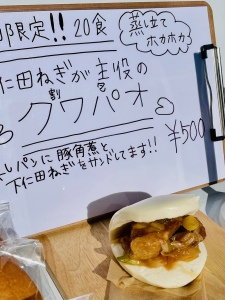 限定!! 20食
蒸し立て
ホカホカ
仁田ねぎが主役の
割包
グワパオ
¥500
しパンに豚角煮と
下仁田ねぎをサンドしてます!!